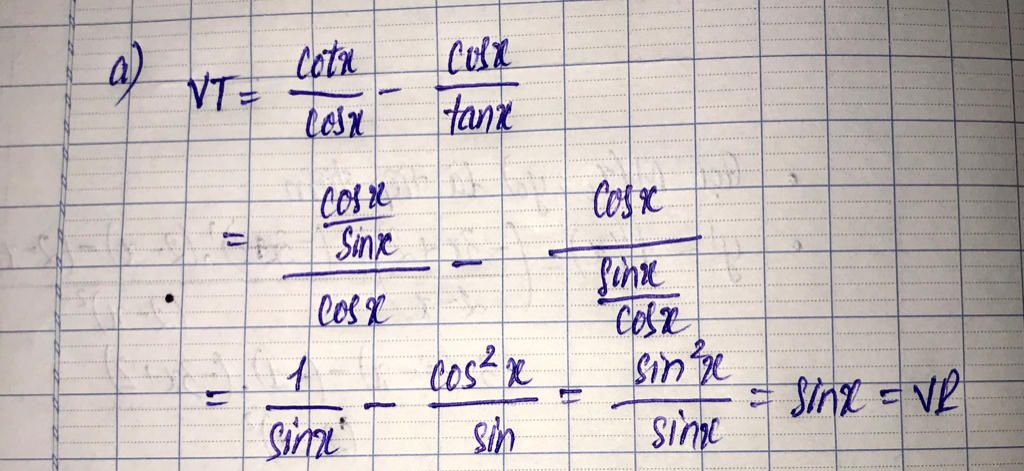 a) VT = cotx/cosx - cosx/tanx
= (cosx/sinx)/cosx - cosx/(sinx/cosx)
= 1/sinx - cos²x/sin = sin²x/sinx = sinx = VP